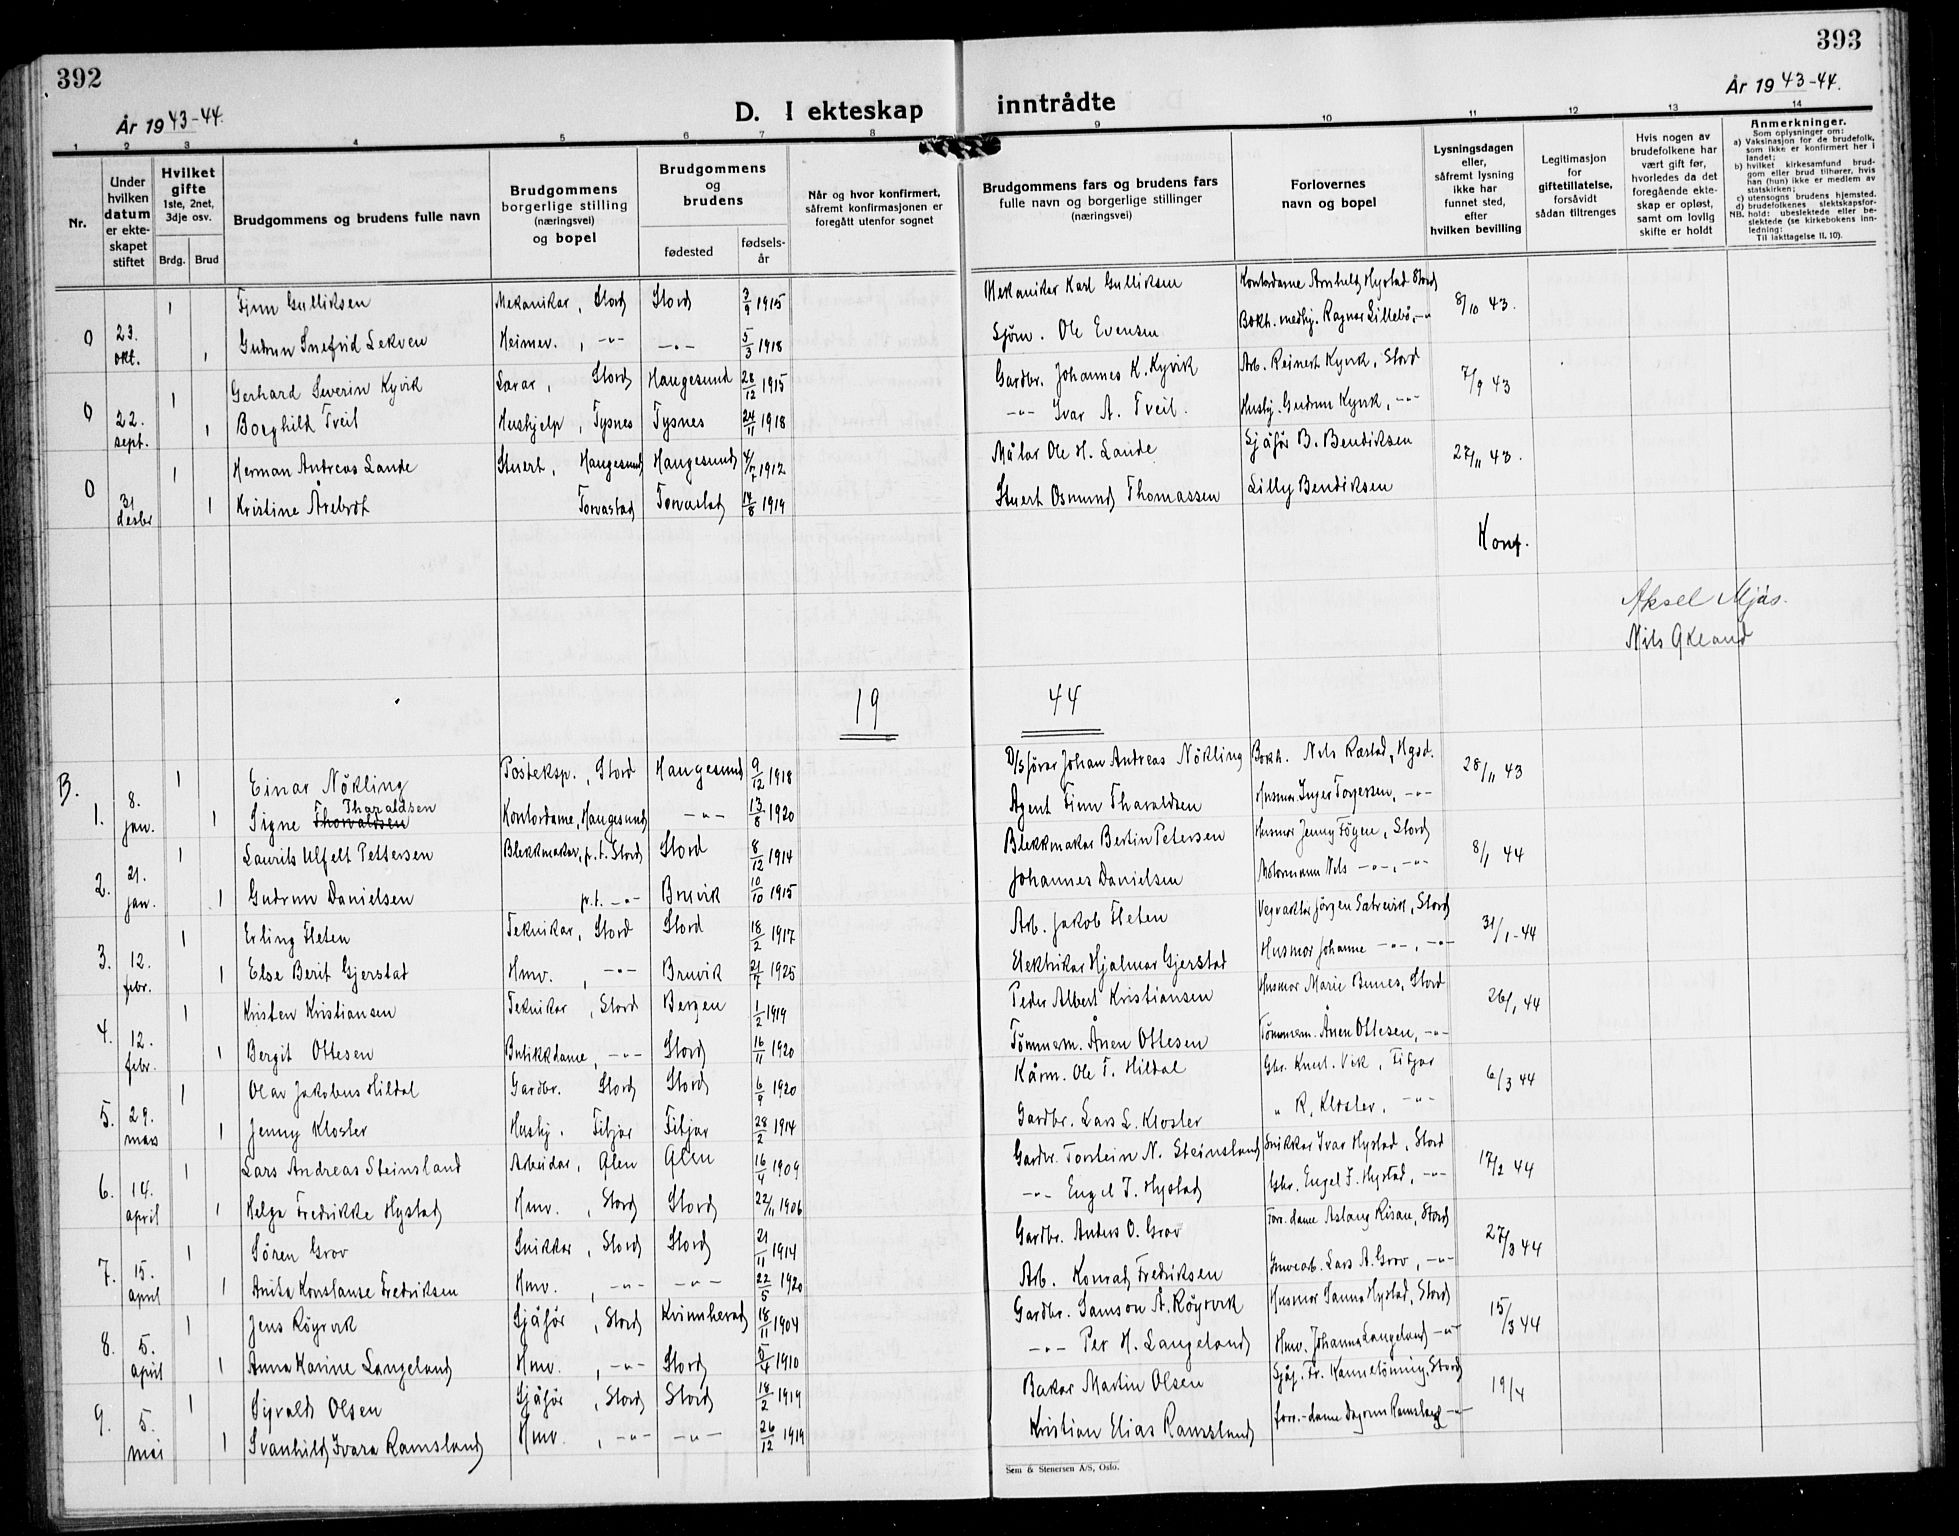 392
393
År 1943-44.
D. I ekteskap inntrådte
År 1943-44.
1 2 3 4 5 6 7 8 9 10 11 12 13 14
Nr.
Under hvilken datum er ekte-skapet stiftet
Hvilket gifte 1ste, 2net, 3dje osv.
Brdg. Brud
Brudgommens og brudens fulle navn
Brudgommens borgerlige stilling (næringsvei) og bopel
Brudgommens og brudens
fødested
fødsels-år
Når og hvor konfirmert, såfremt konfirmasjonen er foregått utenfor sognet
Brudgommens fars og brudens fars fulle navn og borgerlige stillinger (næringsvei)
Forlovernes navn og bopel
Lysningsdagen eller, såfremt lysning ikke har funnet sted, efter hvilken bevilling
Legitimasjon for giftetillatelse, forsåvidt sådan tiltrenges
Hvis nogen av brudefolkene har vært gift før, hvorledes da det foregående ekte-skap er opløst, samt om lovlig skifte er holdt
Anmerkninger.
Som oplysninger om:
a) Vaksinasjon for de brudefolk, som ikke er konfirmert her i landet;
b) hvilket kirkesamfund brud-gom eller brud tilhører, hvis han (hun) ikke er medlem av statskirken;
c) utensogns brudens hjemsted.
d) brudefolkenes slektskapsfor-hold: ubeslektede eller be-slektede (se kirkebokens inn-ledning:
NB. Til iakttagelse II. 10).
1 Finn Gulliksen Mekanikar, Stord Stord 3/9 1915 Mekaniker Karl Gulliksen Kontordame Arnhild Hystad Stord 8/10 43.
0 23. okt. 1 Gudrun Snefrid Lekven Heimev. , -"- -"- 5/3 1918 Sjøm. Ole Evensen Bokh. medhj. Ragnar Lillebö, -"-
1 Gerhard Severin Kyvik Stord Haugesund 28/12 1915 Gardbr. Johannes K. Kyvik Arb. Reinert Kyvik, Stord 7/9 43
0 22. sept. 1 Borghild Tveit Hushjelp, Tysnes Tysnes 24/11 1918 -"- Ivar A. Tveit. Hushj. Gudrun Kyvik, -"-
1 Herman Andreas Lande Stuert, Haugesund Haugesund 1912 Målar Ole H. Lande Sjåfør B. Bendiksen 27/11 43.
0 31 desbr 1 Kristine Årebrot Torvastad Torvastad 14/8 1919 Stuert Osmund Thomassen Lilly Bendiksen
Konf.
Aksel Mjås.
Nils Økland
19 44
B. 1 Einar Nökling Posteksp., Stord Haugesund 9/12 1918 D/S förar Johan Andreas Nökling Bokh. Nils Røstad, Hgsd. 28/11 43
1. 8. jan. 1 Signe Thorvaldsen Tharaldsen Kontordame, Haugesund -"- 13/8 1920 Agent Finn Tharaldsen Husmor Inger Torgersen, -"-
1 Laurits Ulfelt Pettersen Blekkmakar, p.t. Stord Stord 8/12 1914 Blekkmakar Bertin Petersen Husmor Jenny Föyen, Stord 8/1 44
2. 21. jan. 1 Gudrun Danielsen p.t. -"- Bruvik 10/10 1915 Johannes Danielsen Motormann Nils -"-, -"-
1 Erling Fleten Teknikar, Stord Stord 18/2 1917 Arb. Jakob Fleten Vegvaktar Jörgen Sætrevik, Stord 31/1-44
3. 12. febr. 1 Else Berit Gjerstad Hmv. , -"- Bruvik 21/7 1925 Elektrikar Hjalmar Gjerstad Husmor Johanne -"-, -"-
1 Kristen Kristiansen Teknikar , Stord Bergen 1/2 1919 Peder Albert Kristiansen Husmor Marie Bunes, Stord 26/1 44
4. 12. febr. 1 Bergit Ottesen Butikkdame, -"- Stord 16/11 1920 Tömmerm. Ånen Ottesen Tömmerm. Ånen Ottesen, -"-
1 Olav Jakobus Hildal Gardbr. Stord Stord 6/9 1920 Kårm. Ole T. Hildal Gbr. Knut Vik, Fitjar 6/3 44
5. 29. mars 1 Jenny Kloster Hushj. Fitjar Fitjar 28/2 1914 Gardbr. Lars L. Kloster " R. Kloster, -"-
1 Lars Andreas Steinsland Arbeidar, Ølen Ølen 16/4 1909 Gardbr. Torstein N. Steinsland Snikkar Ivar Hystad, Stord 17/2 44
6. 14. april 1 Helga Fredrikke Hystad Hmv. , Stord Stord 22/11 1906 -"- Engel J. Hystad Gbr. Engel J. Hystad, -"-
1 Sören Grov Snikkar, Stord Stord 21/11 1914 Gardbr. Anders O. Grov Forr. dame Aslaug Risan, Stord 27/3 44
7. 15. april 1 Anita Konstanse Fredriksen Hmv. , -"- -"- 22/5 1920 Arb. Konrad Fredriksen Gruvearb. Lars A. Grov, -"-
1 Jens Röyrvik Sjåför , Stord Kvinnherad 18/11 1904 Gardbr. Samson Å. Röyrvik Husmor Sanna Hystad, Stord 15/3 44
8. 5. april 1 Anna Karine Langeland Hmv. , -"- Stord 5/4 1910 -"- Per H. Langeland Hmv. Johanna Langeland -"-
1 Sigvald Olsen Sjåför , Stord Stord 18/2 1919 Bakar Martin Olsen Sjåf. Fr. Kannelönning, Stord 19/4
9. 5. mai 1 Svanhild Ivara Ramsland Hmv. , -"- -"- 26/12 1919 Kristian Elias Ramsland forr.-dame Dagrun Ramsland -"-
Sem & Stenersen A/S, Oslo.